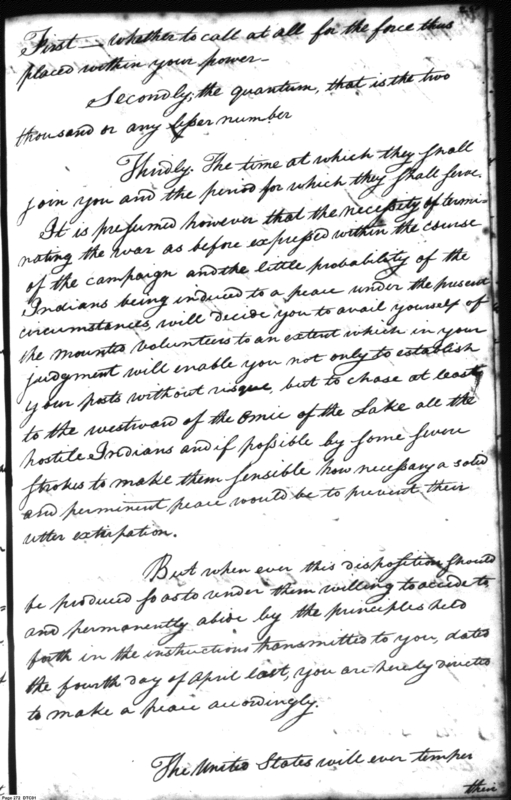 First — whether to call at all for the force thus
placed within your power —
Secondly, the quantum, that is the two
thousand or any lesser number
Thirdly. The time at which they shall
join you and the period for which they shall serve.
It is presumed however that the necessity of termi-
nating the war as before expressed within the course
of the campaign and the little probability of the
Indians being induced to a peace under the present
circumstances, will decide you to avail yourself of
the mounted volunteers to an extent which in your
judgment will enable you not only to establish
your posts without risque, but to chase at least
to the westward of the Omie of the Lake all the
hostile Indians and if possible by some severe
strokes to make them sensible how necessary a solid
and perminent peace would be to prevent their
utter extirpation.
But when ever this disposition should
be produced so as to under them willing to accede to
and permanently abide by the principles held
forth in the instructions transmitted to you, dated
the fourth day of April last, you are hereby directed
to make a peace accordingly.
The United States will ever temper
their
Page 273 DTC01